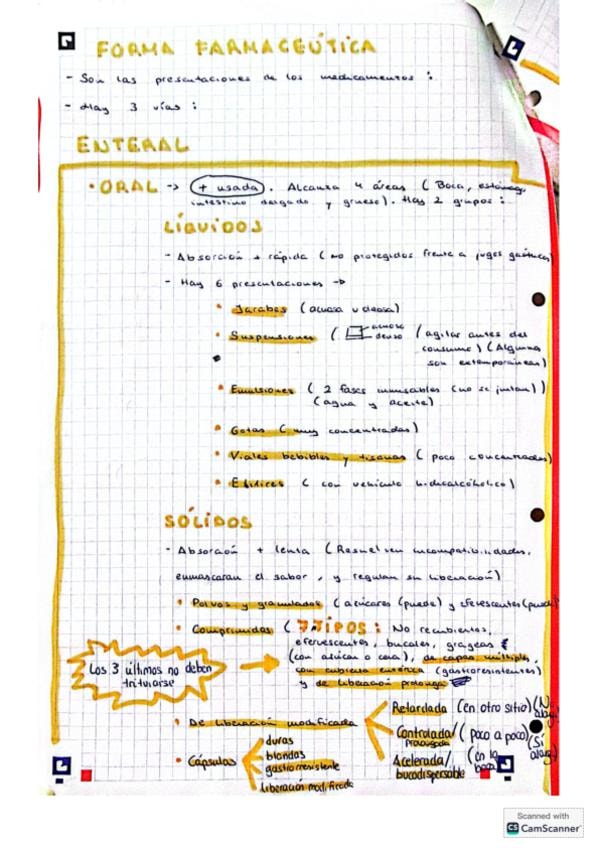 FORMA FARMACEÚTICA
- Son las presentaciones de los medicamentos :
- Hay 3 vías :
ENTERAL
• ORAL -> (+ usada). Alcanza 4 áreas ( Boca,
intestino delgado y grueso). Hay 2 grupos :
LÍQUIDOS
- Absorción + rápida ( no protegidos frente a jugos
- Hay 6 presentaciones ->
• Jarabes (acuosa u oleosa)
• Suspensiones ( acuoso
denso (agitar antes del
consumo) (Algunas
son extemporáneas)
• Emulsiones ( 2 fases inmiscibles (no se juntan))
(agua y aceite)
• Gotas ( muy concentradas)
• Viales bebibles y tisanas ( poco concentrados)
• Elixires ( con vehículo hidroalcohólico)
SÓLIDOS
- Absorción + lenta ( Resuelven incompatibilidades,
enmascaran el sabor, y regulan su liberación)
• Polvos y granulados (azúcares (puede) y efervescentes (puede)
• Comprimidos ( 7 TIPOS : No recubiertos,
efervescentes, bucales, grageas
(con azúcar o cera), de capas múltiples,
con cubierta entérica (gastroresistentes)
y de liberación prolonga
Los 3 últimos no deben
triturarse
• De liberación modificada
Retardada (en otro sitio)
Controlada/ ( poco a poco) (Sí
prolongada
Acelerada/ (en la
bucodispersable boca)
• Cápsulas
duras
blandas
gastrorresistente
liberación modificada
Scanned with
CS CamScanner